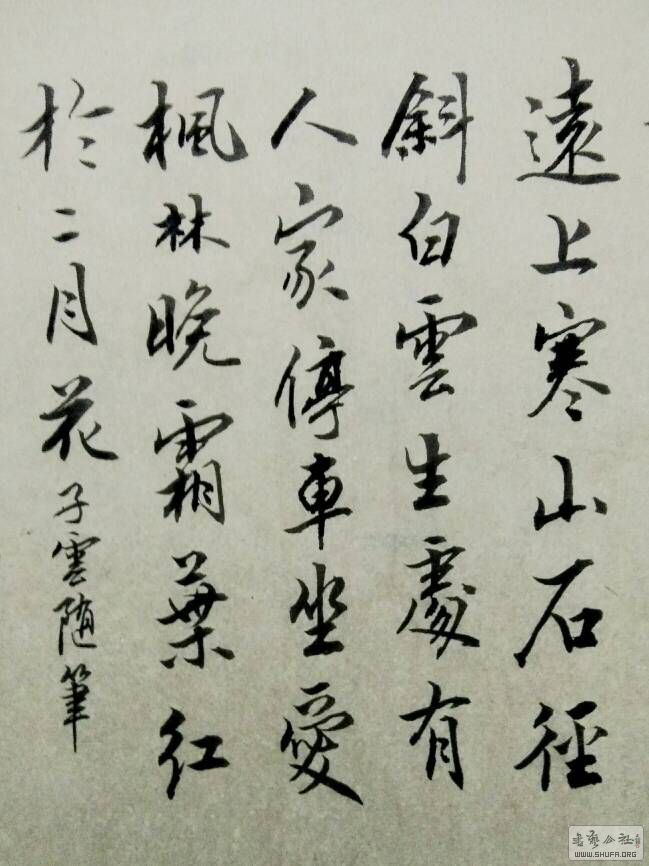 遠上寒山石徑
斜白雲生處有
人家停車坐愛
楓林晚霜葉紅
於二月花子雲随筆
書藝公社
WWW.SHUFA.ORG